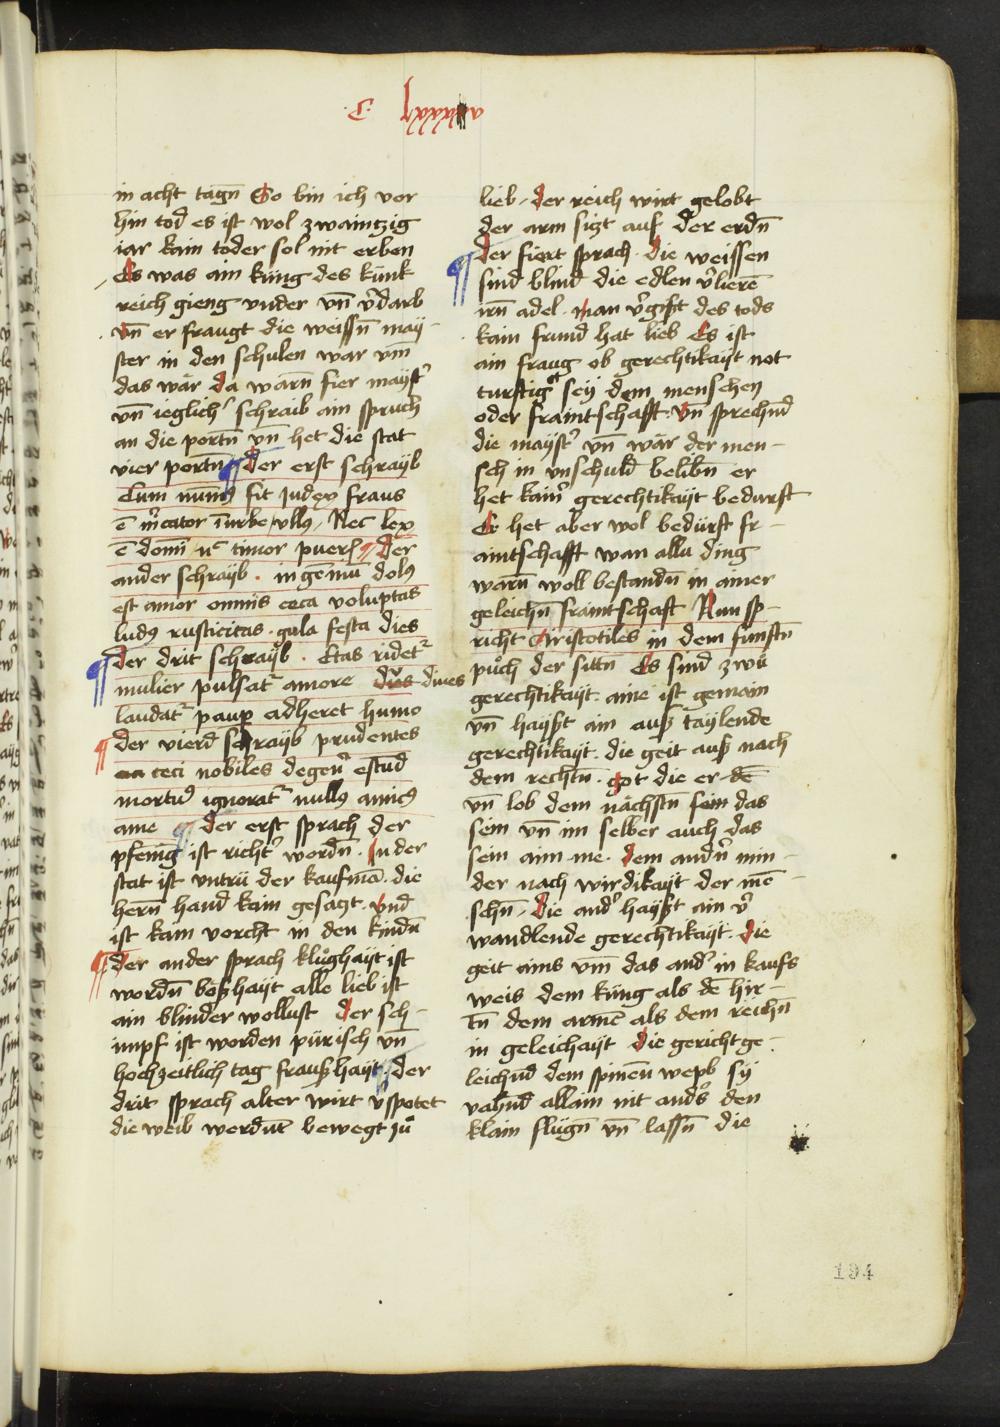 ·C· lxxxxv
in acht tagn̄ So bin ich vor
hin tod es ist wol zwaintzig
iar kain toder sol nit erben
Es was ain küng des künk
reich gieng vnder vn̄ v̓darb
vn̄ er fraugt die weissn̄ may-
ster in den schulen war vm̄
das wär da warn̄ fier mayst̓
vn̄ ieglich̓ schraib ain spruch
an die portn̄ vn̄ het die stat
vier portn̄ ¶ der erst schrayb
Cum fit judex fraus
ē m̓cator ī urbe vllꝰ Nec lex
ē domī timor pueri ¶ der
ander schrayb · ingeniū dolꝰ
est amor omnis ceca voluptas
ludꝰ rusticitas · gula festa dies
¶ der drit schrayb · Etas ridet᷑
mulier pulsat᷑ amore diues
laudat᷑ paup̱ adheret humo
¶ der vierd schrayb prudentes
ceci nobiles degen̓
mortuꝰ ignorat᷑ nullꝰ amicꝰ
ame ¶ der erst sprach der
pfenig ist richt̓ wordn̄ · In der
stat ist vntrü der kaufmā · die
hern̄ hand kain gesatzt · vnd
ist kain vorcht in den kindn̄
¶ der ander sprach klůghayt ist
wordn̄ boßhayt alle lieb ist
ain blinder wollust der sch-
impf ist worden pürisch vn̄
hochzeitlich tag fraußhayt ¶ der
drit sprach alter wirt v̓spotet
die weib werdn̄t bewegt zů
lieb · der reich wirt gelobt
der arm sizt auf der erdn̄
¶ der fiert sprach · die weissen
sind blind die edlen v̓lierē
irn̄ adel · man v̓gißt des tods
kain frund hat lieb Es ist
ain fraug ob gerechtikayt not
turftig sey dem menschen
oder fraintschafft · vn̄ sprechnd
die mayst̓ vn̄ wär der men-
sch in vnschuld belibn̄ er
het kain̓ gerechtikayt bedurft
Er het aber wol bedürft fr-
aintschafft wan allu ding
warn̄ woll bestandn̄ in ainer
geleichn̄ fraintschaft Nun sp-
richt Aristotiles in dem funftn̄
půch der sittn Es sind zwů
gerechtikayt · aine ist gemain
vn̄ hayßt ain auß taylende
gerechtikayt · die geit auß nach
dem rechtn̄ · got die er dē
vn̄ lob dem nächstn̄ sein das
sein vn̄ im selber auch das
sein aim me · dem andn̓ min-
der nach wirdikayt der mē-
schn̄ · die and̓ hayßt ain v̓
wandlende gerechtikayt · die
geit ains vm̄ das and̓ in kaufs
weis dem küng als dē hir-
tn̄ dem armē als dem reichn̄
in geleichait die gericht ge-
leichnd dem spinnen wepb sy
vahnd allain nit ands̓ den
klain flugn̄ vn̄ lassn̄ die
194